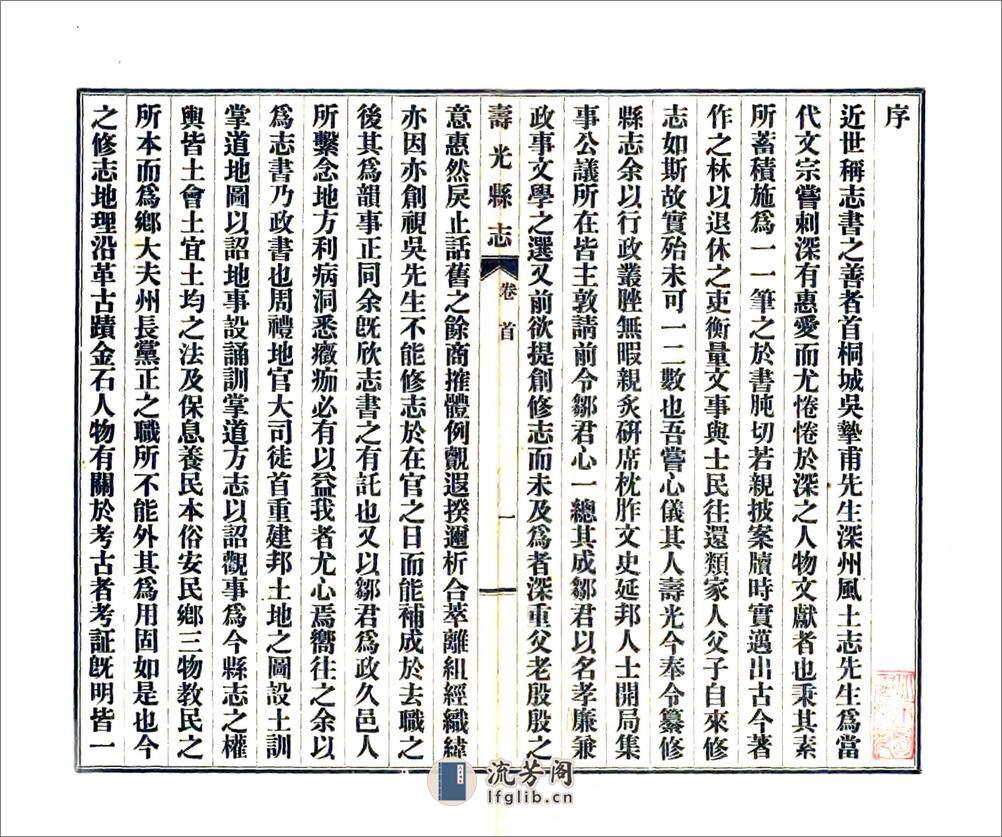 序
近世稱志書之善者首桐城吳摯甫先生深州風土志先生爲當
代文宗嘗刺深有惠愛而尤惓惓於深之人物文獻者也秉其素
所蓄積施爲一一筆之於書肫切若親披案牘時實邁出古今著
作之林以退休之吏衡量文事與士民往還類家人父子自來修
志如斯故實殆未可一二數也吾嘗心儀其人壽光今奉令纂修
縣志余以行政叢脞無暇親炙硏席枕胙文史延邦人士開局集
事公議所在皆主敦請前令鄒君心一總其成鄒君以名孝廉兼
政事文學之選又前欲提創修志而未及爲者深重父老殷殷之
壽光縣志
卷首
一
意惠然戾止話舊之餘商搉體例覶遐揆邇析合萃離組經織緯
亦因亦創視吳先生不能修志於在官之日而能補成於去職之
後其爲韻事正同余旣欣志書之有託也又以鄒君爲政久邑人
所繫念地方利病洞悉癥痂必有以益我者尤心焉嚮往之余以
爲志書乃政書也周禮地官大司徒首重建邦土地之圖設土訓
掌道地圖以詔地事設誦訓掌道方志以詔觀事爲今縣志之權
輿皆土會土宜土均之法及保息養民本俗安民鄉三物教民之
所本而爲鄉大夫州長黨正之職所不能外其爲用固如是也今
之修志地理沿革古蹟金石人物有關於考古者考証旣明皆一
流芳阁
lfglib.cn